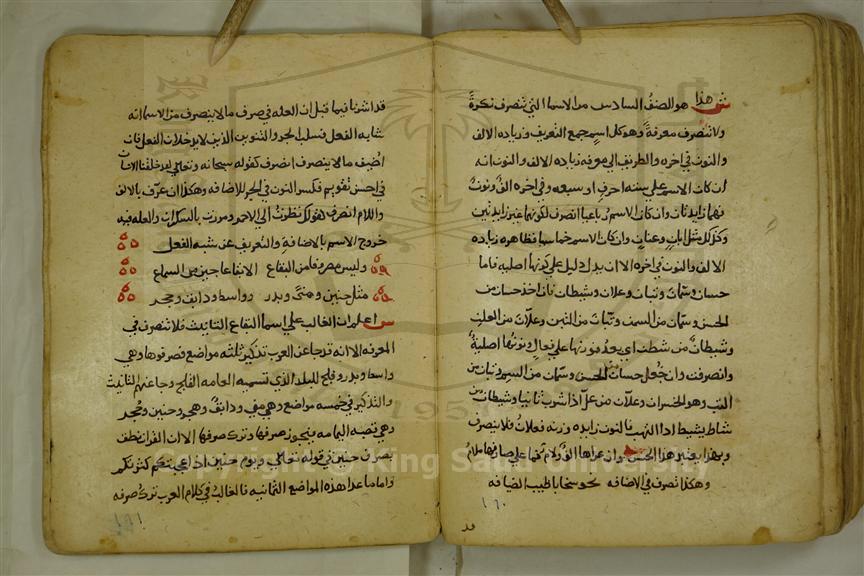 ش هذا هو الصنف السادس من الاسما التي تنصرف نكرة
ولا تنصرف معرفة وهو كل اسم جمع التعريف وزياده الالف
والنون في اخره والطريق الي معرفه زياده الالف والنون انه
ان كان الاسم علي سته احرف او سبعه وفي اخره الف ونون
فهما زايدتان وان كان الاسم رباعيا انصرف لكونهما غير زايدتين
وذلك مثل ابان وعنان وان كان الاسم خماسيا فظاهره زياده
الالف والنون في اخره الا ان يدل دليل علي كونها اصليه فاما
حسان وسمان وتبان وعلان وشيطان فان اخذ حسان من
الحسن وسمان من السمن وتبان من التبن وعلان من العلن
وشيطان من شطن اي بعد فوزنها علي فعال ونونها اصلية
وانصرفت وان جعل حسان من الحس وسمان من السم وتبان من
التب وهو الخسران وعلان من عل اذا شرب ثانيا وشيطان من
شاط يشيط اذا التهب فالنون زايده وزنه فعلان فلا ينصرف
وبهذا يعتبر هذا الجنس وان عراها الف ولام فما علي صارفها ملام
وهكذا تصرف في الاضافه نحو سخا باطيب الضيافه
١٦٠
قد
قد اشرنا فيما قبل ان العله في صرف ما لا ينصرف من الاسما انه
شابه الفعل فسلب الجر والتنوين الذين لا يدخلان الفعل فان
اضيف ما لا ينصرف انصرف كقوله سبحانه وتعالي لقد خلقنا الانسان
في احسن تقويم فكسر النون في الجر للاضافه وهكذا ان عرف بالالف
واللام انصرف كقولك نظرت الي الاحمر ومررت بالسكران والعله فيه
خروج الاسم بالاضافة والتعريف عن شبه الفعل
وليس مصروفا من البقاع الا بقاع جين في السماع
مثل حنين ومني وبدر وواسط ودابق وحجر
ش اعلم ان الغالب علي اسما البقاع التانيث فلا تنصرف في
المعرفه الا انه قد جا عن العرب تذكير ثلثه مواضع فصرفوها وهي
واسط وبدر وفلج للبلد الذي تسميه العامه الفلج وجا عنهم التانيث
والتذكير في خمسه مواضع وهي مني ودابق وهجر وحنين وحجر
وهي قصبه اليمامه فيجوز صرفها وترك صرفها الا ان القران نطق
بصرف حنين في قوله تعالي ويوم حنين اذ اعجبتكم كثرتكم
واما ما عدا هذه المواضع الثمانيه فالغالب في كلام العرب ترك صرفه
١٦١
Copyright © King Saud University
1957